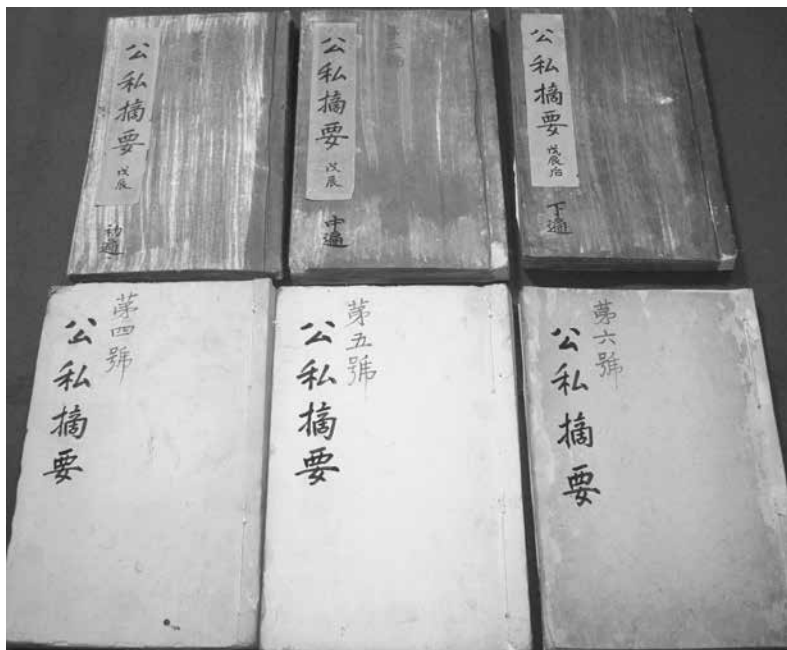 公私摘要 戊辰
初遍
公私摘要 戊辰
中遍
公私摘要 戊辰后
下遍
第四號
公私摘要
第五號
公私摘要
第六號
公私摘要